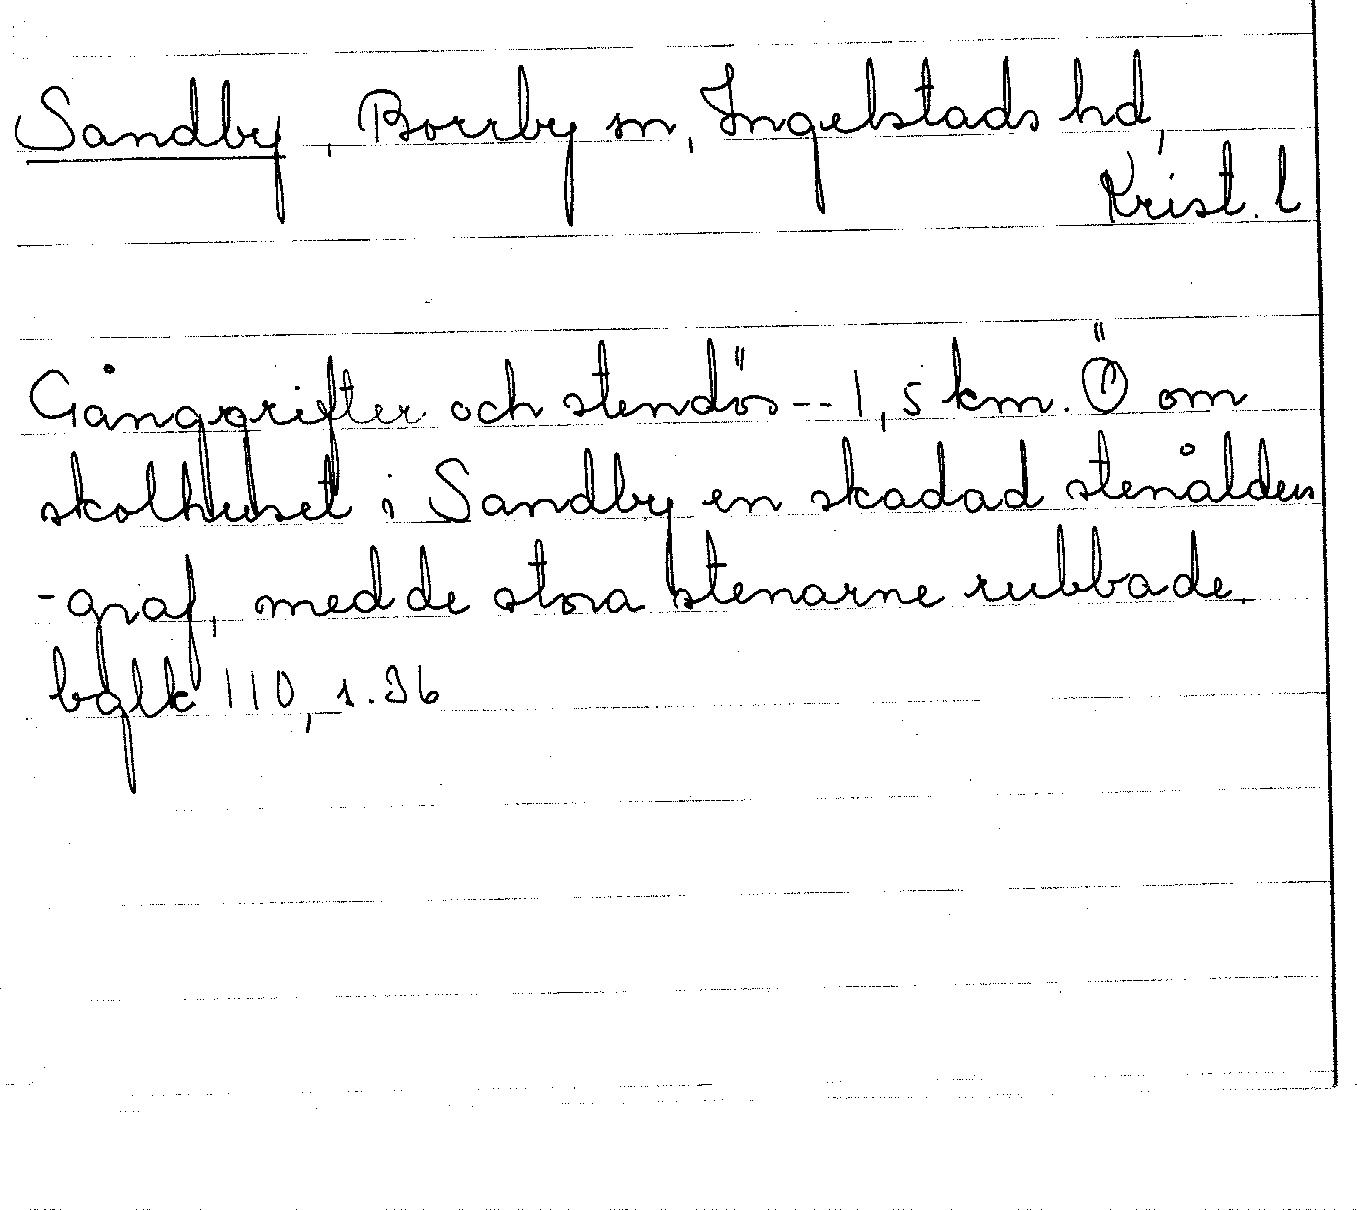 Sandby, Borrby sn, Ingelstads hd,
Krist. l
Gånggrifter och stendös -- 1,5 km. Ö om
skolhuset i Sandby en skadad stenålders
-graf, med de stora stenarne rubbade.
bglk 110, 1.36